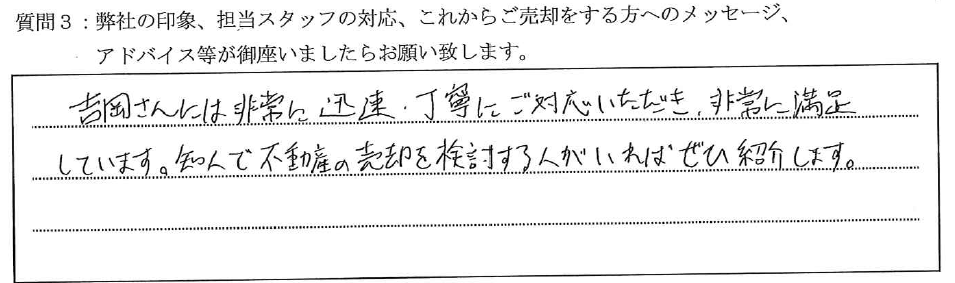 質問3:弊社の印象、担当スタッフの対応、これからご売却をする方へのメッセージ、
アドバイス等が御座いましたらお願い致します。
吉岡さんには非常に迅速・丁寧にご対応いただき、非常に満足
しています。知人で不動産の売却を検討する人がいればぜひ紹介します。